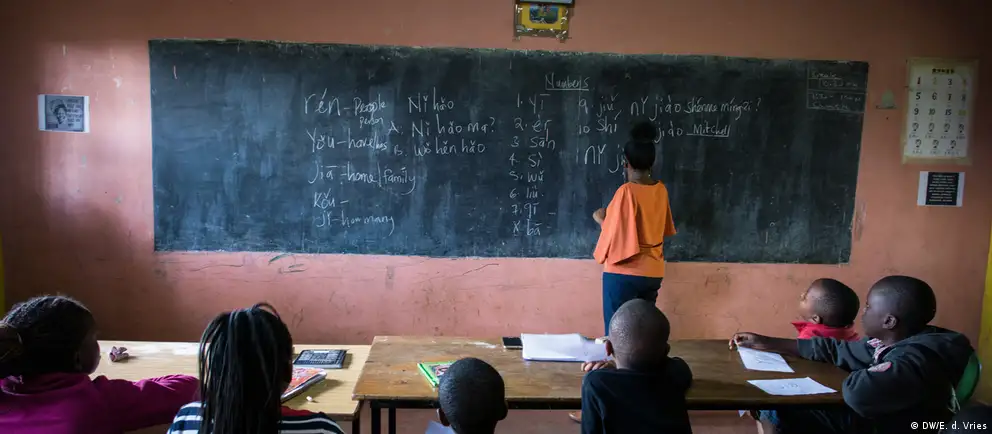 rén - People
person
Yǒu - have/has
Jiā - home/family
Kǒu -
Jǐ - how many
Nǐ hǎo
A. Nǐ hǎo ma?
B. Wǒ hěn hǎo
Numbers
1. yī
2. èr
3. Sān
4. Sì
5. wǔ
6. liù
7. qī
8. bā
9. jiǔ
10 shí
nǐ jiào shénme míngzi?
jiào Mitchel
nǐ
© DW/E. d. Vries